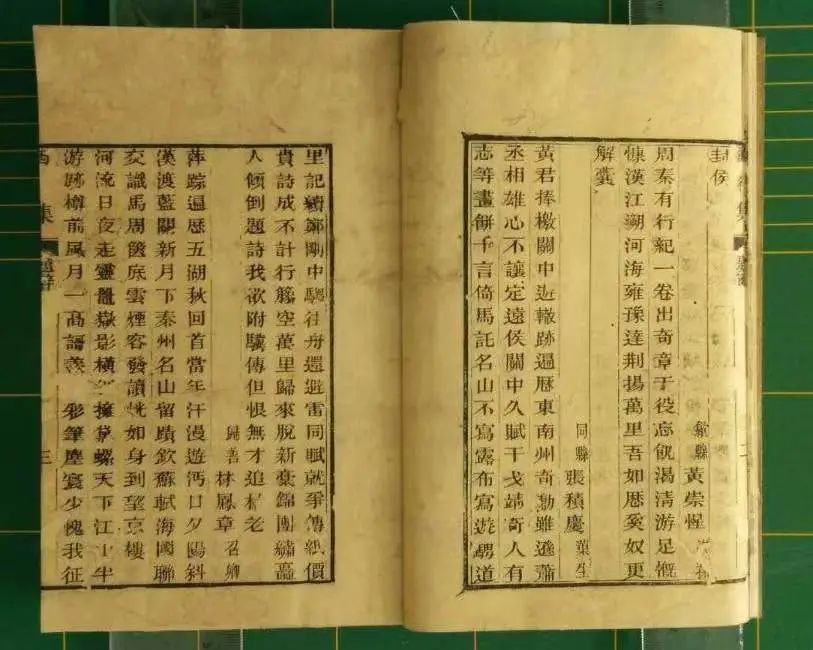 封侯
黃崇惺
周秦有行紀一卷出奇章于役忘飢渴清游足慨
慷漢江溯河海雍豫達荆揚萬里吾如歴奚奴更
解囊
同縣 張積慶 葉生
黃君捧檄關中逝轍跡遍歴東南州奇勳雖遜蕭
丞相雄心不讓定遠侯關中久賦干戈靖奇人有
志等畫餅千言倚馬託名山不寫露布寫遊騁道
里記續鄭剛中驄往舟還避雷同賦就爭傳紙價
貴詩成不計行籐空萬里歸來脫新稾錦團繡
人傾倒題詩我欲附驥傳但恨無才追杜老
歸善 林鳳章 召卿
萍踪遍歴五湖秋回首當年汗漫遊沔口夕陽斜
漢渡藍關新月下秦州名山留蹟欽蘇軾海國聯
交識馬周篋底雲煙容發讀恍如身到望京樓
河流日夜走靈鼉嶽影橫 擁黛螺天下江山半
游跡樽前風月一高 彩筆塵寰少愧我征
集
三